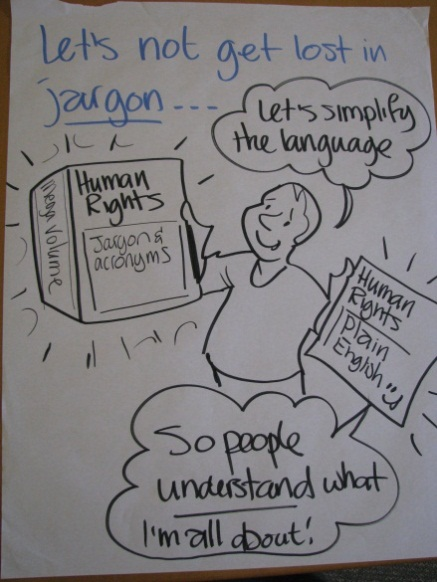 Let's not get lost in
jargon---
Let's simplify
the language
Mega Volume
Human
Rights
Jargon &
acronyms
Human
Rights
plain
English
So people
understand what
I'm all about!